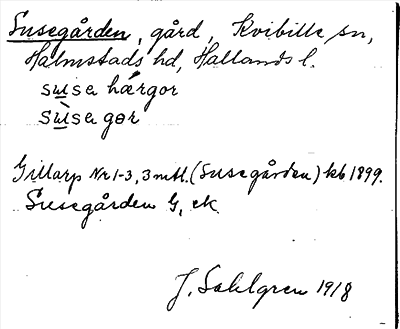 Susegården, gård, Kvibille sn,
Halmstads hd, Hallands l.
susehårgor
susegor
Gillarp Nr 1-3, 3 mtl. (Susegården) kb 1899.
Susegården G, ek.
J. Sahlgren 1918